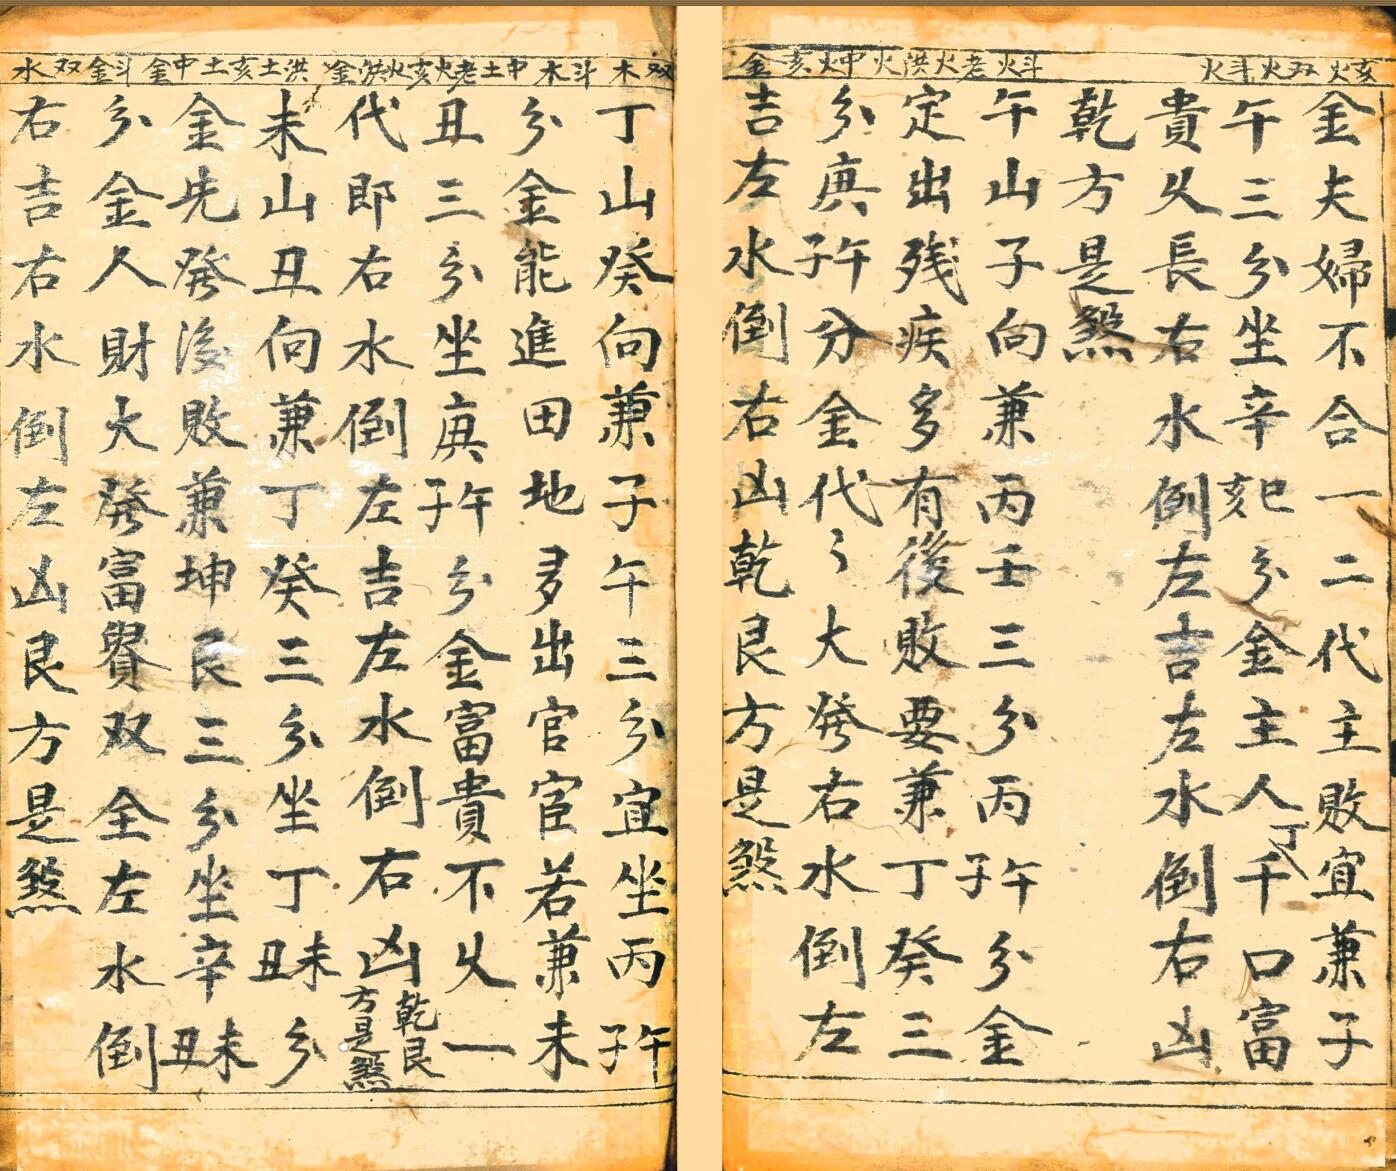 亥火双火斗火
斗火老火洪火中火亥金
金夫婦不合一二代主敗宜兼子
午三分坐辛巳亥分金主人丁千口富
貴久長右水倒左吉左水倒右凶
乾方是煞
午山子向兼丙壬三分丙午子分金
定出残疾多有後敗要兼丁癸三
分庚午子分金代〻大發右水倒左
吉左水倒右凶乾艮方是煞
双木斗木中土老火亥火洪金
洪土亥土中金斗金双水
丁山癸向兼子午三分宜坐丙午子
分金能進田地多出官宦若兼未
丑三分坐庚午子分金富貴不久一
代即右水倒左吉左水倒右凶乾艮方是煞
未山丑向兼丁癸三分坐丁未丑分
金先發後敗兼坤艮三分坐辛未丑
分金人財大發富貴双全左水倒
右吉右水倒左凶艮方是煞